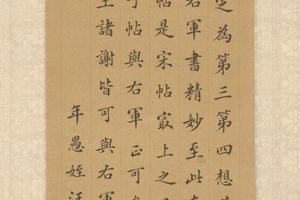 芝為第三第四想
右軍書精妙至此
帖是宋帖㝡上之
帖與右軍正可
王諸謝皆可與右軍
年愚姪汪